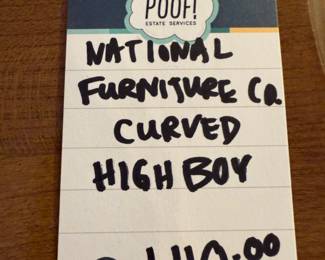 POOF!
ESTATE SERVICES
NATIONAL
FURNITURE CO.
CURVED
HIGH BOY